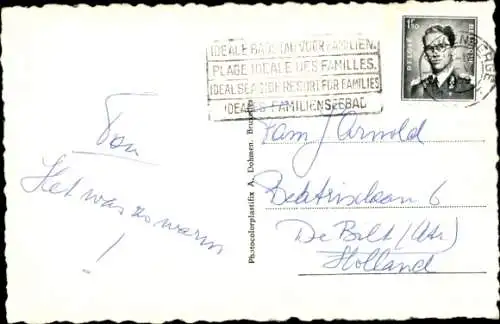 IDEALE BADPLAATS VOOR FAMILIEN.
PLAGE IDEALE DES FAMILLES.
IDEAL SEASIDE RESORT FOR FAMILIES
IDEALES FAMILIENSEEBAD
BELGIE
BELGIQUE
Ton
Het was zo warm
!
Photocolorplastifix A. Dohmen, Bruxelles
Fam J Arnold
Beatrixlaan 6
De Bilt (Utr)
Holland